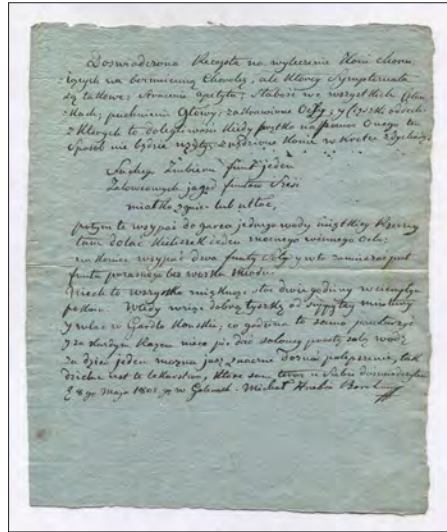 Doswiadczona Recepta na wyleczenie Koni choru-
iących na bezimienną Chorobę, ale ktorey Symptomata
są takowe; Stracenie apetytu; Słabość we wszystkich Człon-
kach; puchnienie Głowy; zakrwawione Oczy; y Ciężki oddech
z ktorych to dolegliwości kiedy prętko na pomoc Onego ten
Sposob nie będzie użyty, znędznione Konie w krotce zdychaią.
Suchego Zinbieru funt jeden
Jałowcowych jagod funtow Sześć
miałko zgnieć lub utłuc,
potym te wsypać do garca jednego wody miękkiey Rzeczny
tam dolać Kieliszek jeden mocnego winnego Octu:
na koniec wsypać dwa funty Soly y w to zamieszać puł
funta przasnego bez wosku miodu.
Niech to wszystko zmieszane stoi dwie godziny w ciepłym
Wtedy wziąć dobrą łyszkę od tey mixtury
y wlać w Gardło Konskie; co godzina to samo powtarzać
y za każdym Razem nieco pić dać słoney prostą solą wody
za dzien jeden można jusz znacznie doznać polepszenie, tak
dzielne jest te lekarstwo, ktore sam teras u siebie doswiadczyłem
8 go Maja 1803 w Michał Hrabia Borch